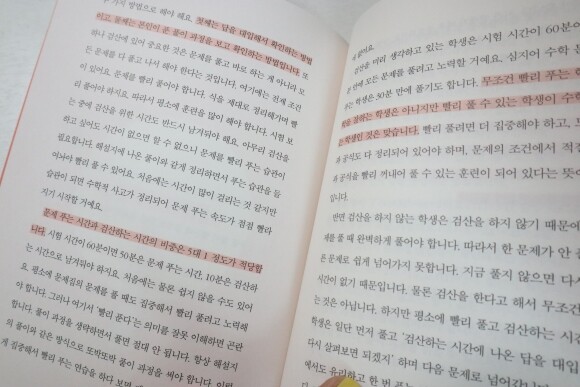 가지 방법으로 해야 해요. 첫째는 답을 대입해서 확인하는 방법
이고 둘째는 본인이 쓴 풀이 과정을 보고 확인하는 방법입니다. 또
하나 검산에 있어 중요한 것은 문제를 풀고 바로 하는 게 아니라 모
든 문제를 다 풀고 나서 해야 한다는 것입니다. 여기에는 전제 조건
이 있어요. 문제를 빨리 풀어야 합니다. 식을 제대로 정리해가며 빨
리 풀어야 하지요. 따라서 평소에 훈련을 많이 해야 합니다. 시험 보
는 중에 검산을 위한 시간도 반드시 남겨둬야 해요. 아무리 검산을
하고 싶어도 시간이 없으면 할 수 없으니 문제를 빨리 푸는 습관이
필요합니다. 해설지에 나온 풀이와 같게 정리하면서 푸는 습관을 들
여놔야 빨리 풀 수 있어요. 처음에는 시간이 많이 걸리는 것 같지만
습관이 되면 수학적 사고가 정리되어 문제 푸는 속도가 점점 빨라
지기 시작할 거예요.
문제 푸는 시간과 검산하는 시간의 비중은 5대 1 정도가 적당합
니다. 시험 시간이 60분이면 50분은 문제 푸는 시간, 10분은 검산하
는 시간으로 남겨둬야 하지요. 처음에는 물론 쉽지 않을 수도 있어
요. 평소에 문제집의 문제를 풀 때도 집중해서 빨리 풀려고 노력해
야 합니다. 그러나 여기서 '빨리 푼다'는 의미를 잘못 이해하면 곤란
합니다. 풀이 과정을 생략하면서 풀면 절대 안 됩니다. 항상 해설지
의 풀이와 같은 방식으로 또박또박 풀이 과정을 써야 합니다.
게 집중해서 빨리 푸는 연습을 하다 보면
지 풀어요.
검산을 미리 생각하고 있는 학생은 시험 시간이 60분이
분 안에 모든 문제를 풀려고 노력할 거예요. 심지어 수학
는 학생은 30분 만에 풀기도 합니다. 무조건 빨리 푸는 학
잘하는 학생은 아니지만 빨리 풀 수 있는 학생이 수학
학생인 것은 맞습니다. 빨리 풀려면 더 집중해야 하고,
과 공식도 다 정리되어 있어야 하며, 문제의 조건에서 적절
과 공식을 빨리 꺼내어 풀 수 있는 훈련이 되어 있다는 뜻이
입니다.
반면 검산을 하지 않는 학생은 검산을 하지 않기 때문에
제를 풀 때 완벽하게 풀어야 합니다. 따라서 한 문제가 안
든 문제로 쉽게 넘어가지 못합니다. 지금 풀지 않으면 다시
시간이 없기 때문입니다. 물론 검산을 한다고 해서 무조건
는 것은 아닙니다. 하지만 평소에 빨리 풀고 검산하는
학생은 일단 먼저 풀고 '검산하는 시간에 나온 답을 대입
다시 살펴보면 되겠지' 하며 다음 문제로 넘어
에서도 유리하고 한 번